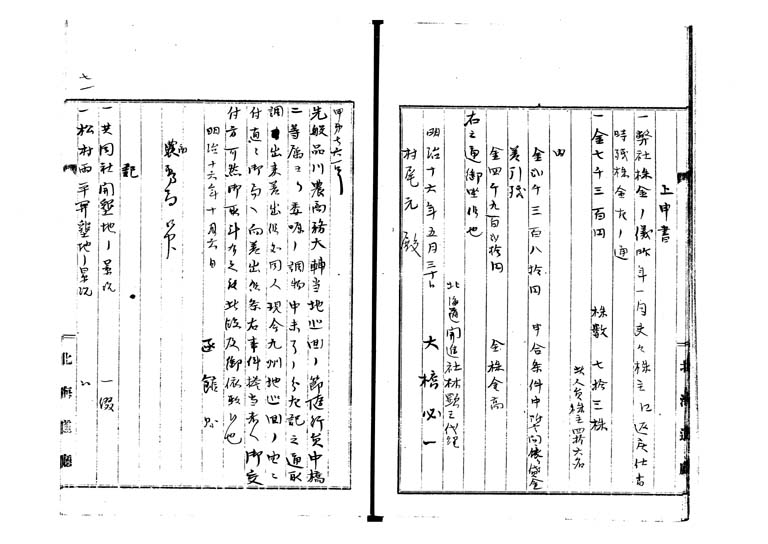 上申書
一弊社株金ノ儀昨年一月交々株主江返戻仕候
時残株金左ノ通
一金七千三百円 株数 七拾三株
此人員株主四拾六名
内
金弐千三百八拾円 申合条件中
差引残
金四千九百弐拾円 全株金高
右之通御坐候也
北海道開進社林顕三代理
明治十六年五月三十日 大橋必一
村尾元殿
北海道庁
先般品川農商務大輔当地巡回ノ節随行員中橋
二等属ヨリ委嘱ノ調物中未了ノ分左記之通取
調出来差出候処同人現今九州地巡回ノ由ニ
付直ニ御局ヘ向差出候条右事件担当者ヘ御交
付方可然御取斗有之度此段及御依頼候也
明治十六年十月六日 函館
記
一共同社開墾地ノ景况 一綴
一松村両平開墾地ノ景况 〃
北海道庁